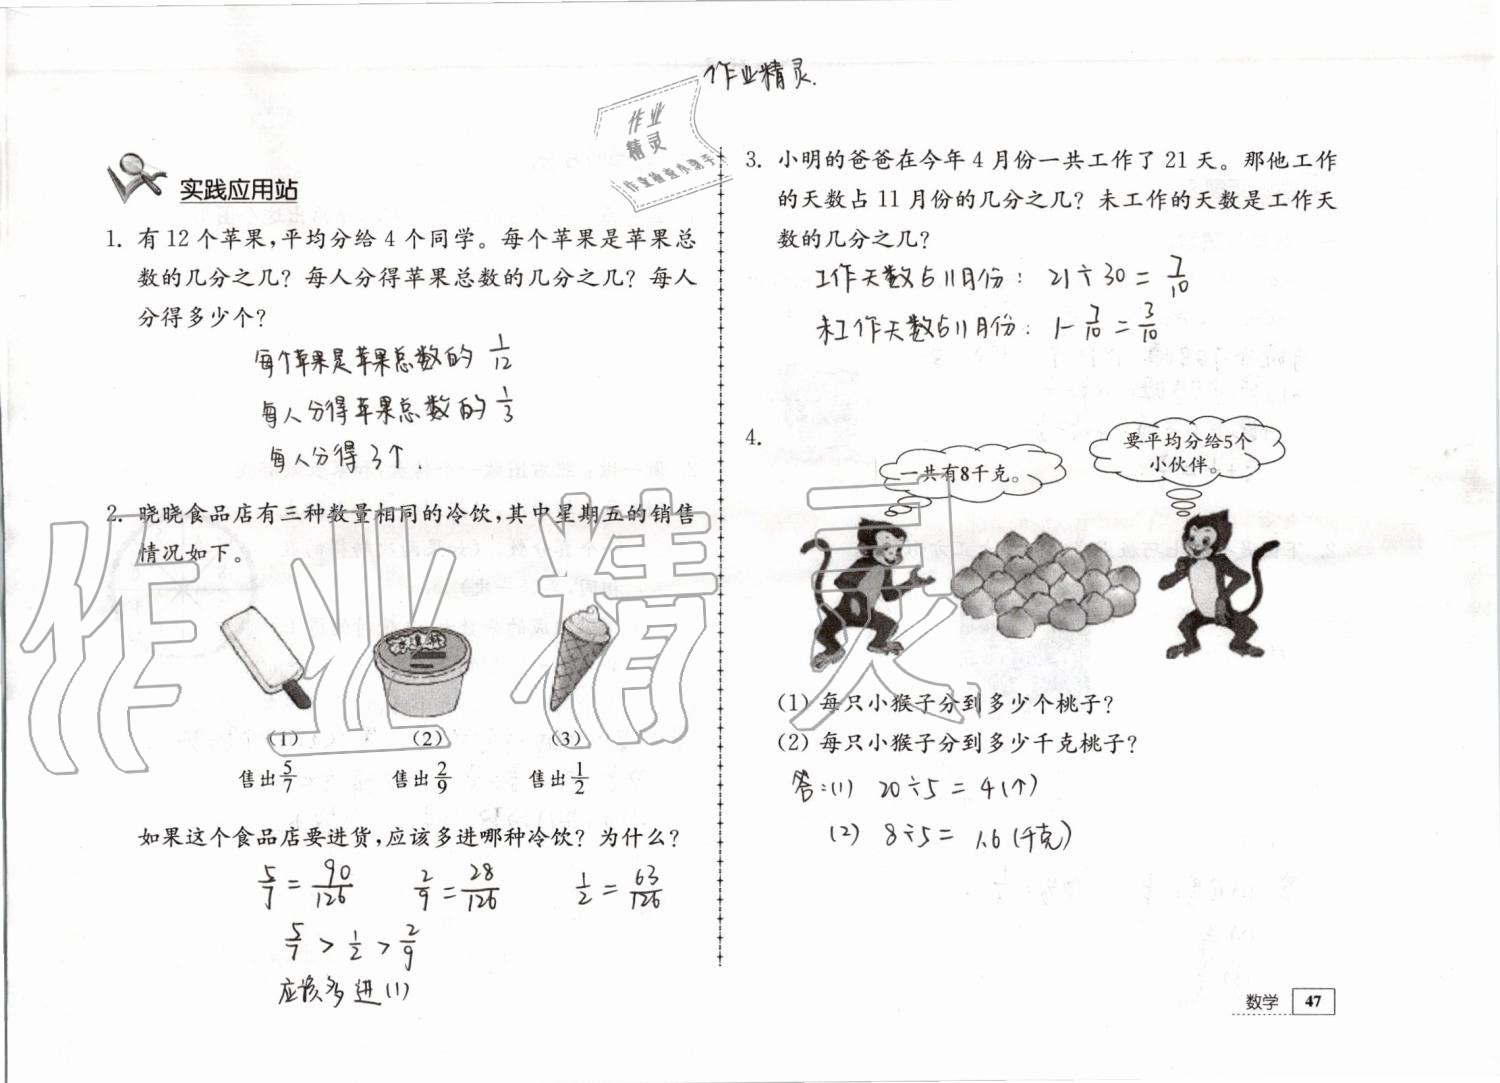 作业精灵.
作业
精灵
作业检查小助手
实践应用站
1. 有 12 个苹果,平均分给 4 个同学。每个苹果是苹果总
数的几分之几? 每人分得苹果总数的几分之几? 每人
分得多少个?
每个苹果是苹果总数的 1/12
每人分得苹果总数的 1/3
每人分得 3个.
2. 晓晓食品店有三种数量相同的冷饮,其中星期五的销售
情况如下。
(1) (2) (3)
售出5/7 售出2/9 售出1/2
如果这个食品店要进货,应该多进哪种冷饮? 为什么?
5/7 = 90/126 2/9 = 28/126 1/2 = 63/126
5/7 > 1/2 > 2/9
应该多进(1)
3. 小明的爸爸在今年 4 月份一共工作了 21 天。那他工作
的天数占 11 月份的几分之几? 未工作的天数是工作天
数的几分之几?
工作天数占11月份: 21÷30 = 7/10
未工作天数占11月份: 1-7/10 = 3/10
4.
一共有8千克。
要平均分给5个
小伙伴。
(1) 每只小猴子分到多少个桃子?
(2) 每只小猴子分到多少千克桃子?
答:(1) 20÷5 = 4(个)
(2) 8÷5 = 1.6(千克)
数学 47
作业精灵